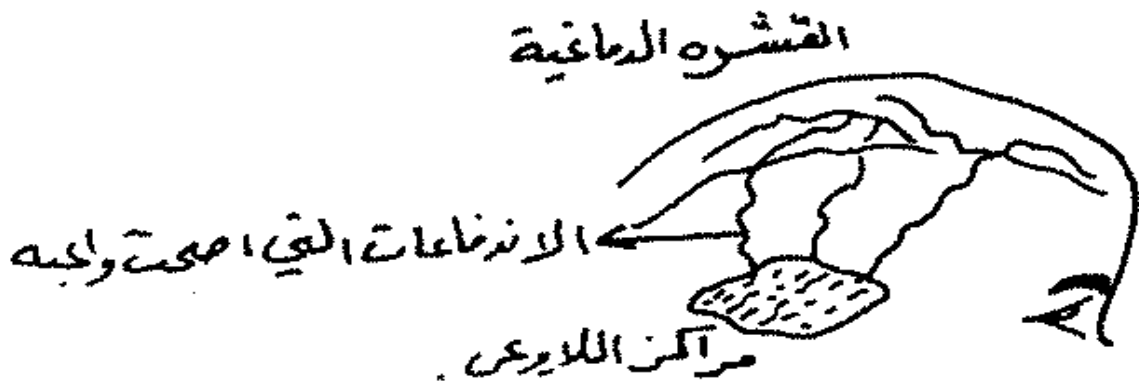 القشره الدماغية
الاندفاعات التي اصبحت واعيه
مراكز اللاوعي